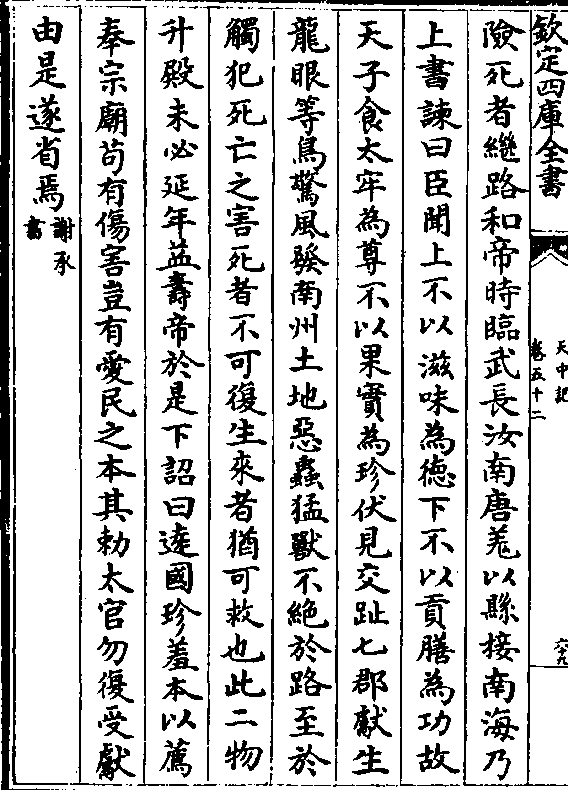 欽定四庫全書
天中記
卷五十二
六十九
險死者繼路和帝時臨武長汝南唐羌以縣接南海乃
上書諫曰臣聞上不以滋味為徳下不以貢膳為功故
天子食太牢為尊不以果實為珍伏見交趾七郡獻生
龍眼等鳥驚風發南州土地惡蟲猛獸不絶於路至於
觸犯死亡之害死者不可復生來者猶可救也此二物
升殿未必延年益壽帝於是下詔曰逺國珍羞本以薦
奉宗廟茍有傷害豈有愛民之本其勅太官勿復受獻
由是遂省焉謝承
書